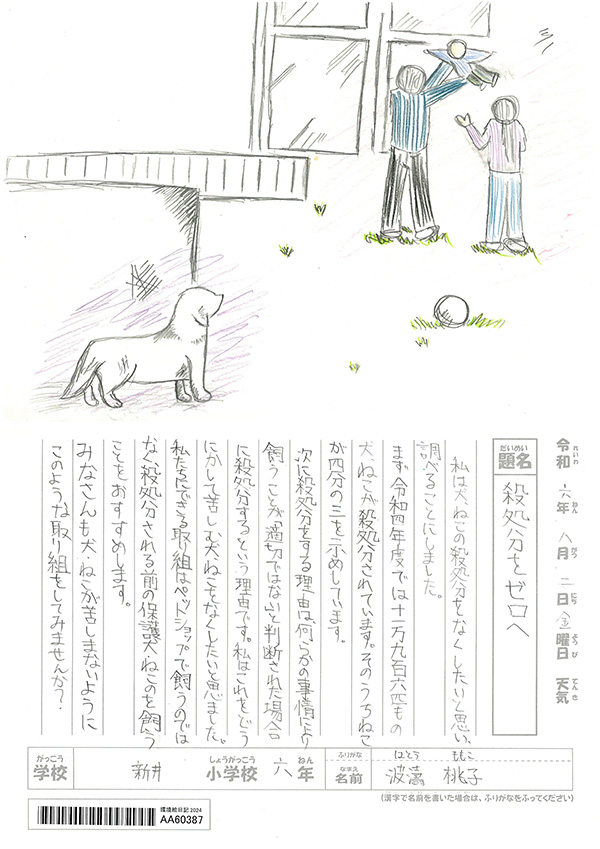 令和 六年 八月 二日 金曜日 天気
れいわ ねん がつ にち ようび てんき
だいめい
題名 殺処分をゼロへ
私は犬、ねこの殺処分をなくしたいと思い、
調べることにしました。
まず令和四年度では十一万九百六匹もの
犬、ねこが殺処分されています。そのうちねこ
が四分の三を示めしています。
次に殺処分をする理由は何らかの事情により
飼うことが「適切ではない」と判断された場合
に殺処分するという理由です。私はこれをどう
にかして苦しむ犬、ねこをなくしたいと思いました。
私たちにできる取り組はペットショップで飼うのでは
なく殺処分される前の保護犬・ねこのを飼う
ことをおすすめします。
みなさんも犬・ねこが苦しまないように
このような取り組をしてみませんか?
がっこう しょうがっこう ねん
学校 新井 小学校 六年
ふりがな はとう ももこ
なまえ
名前 波濤 桃子
(漢字で名前を書いた場合は、ふりがなをふってください)
環境絵日記 2024
AA60387